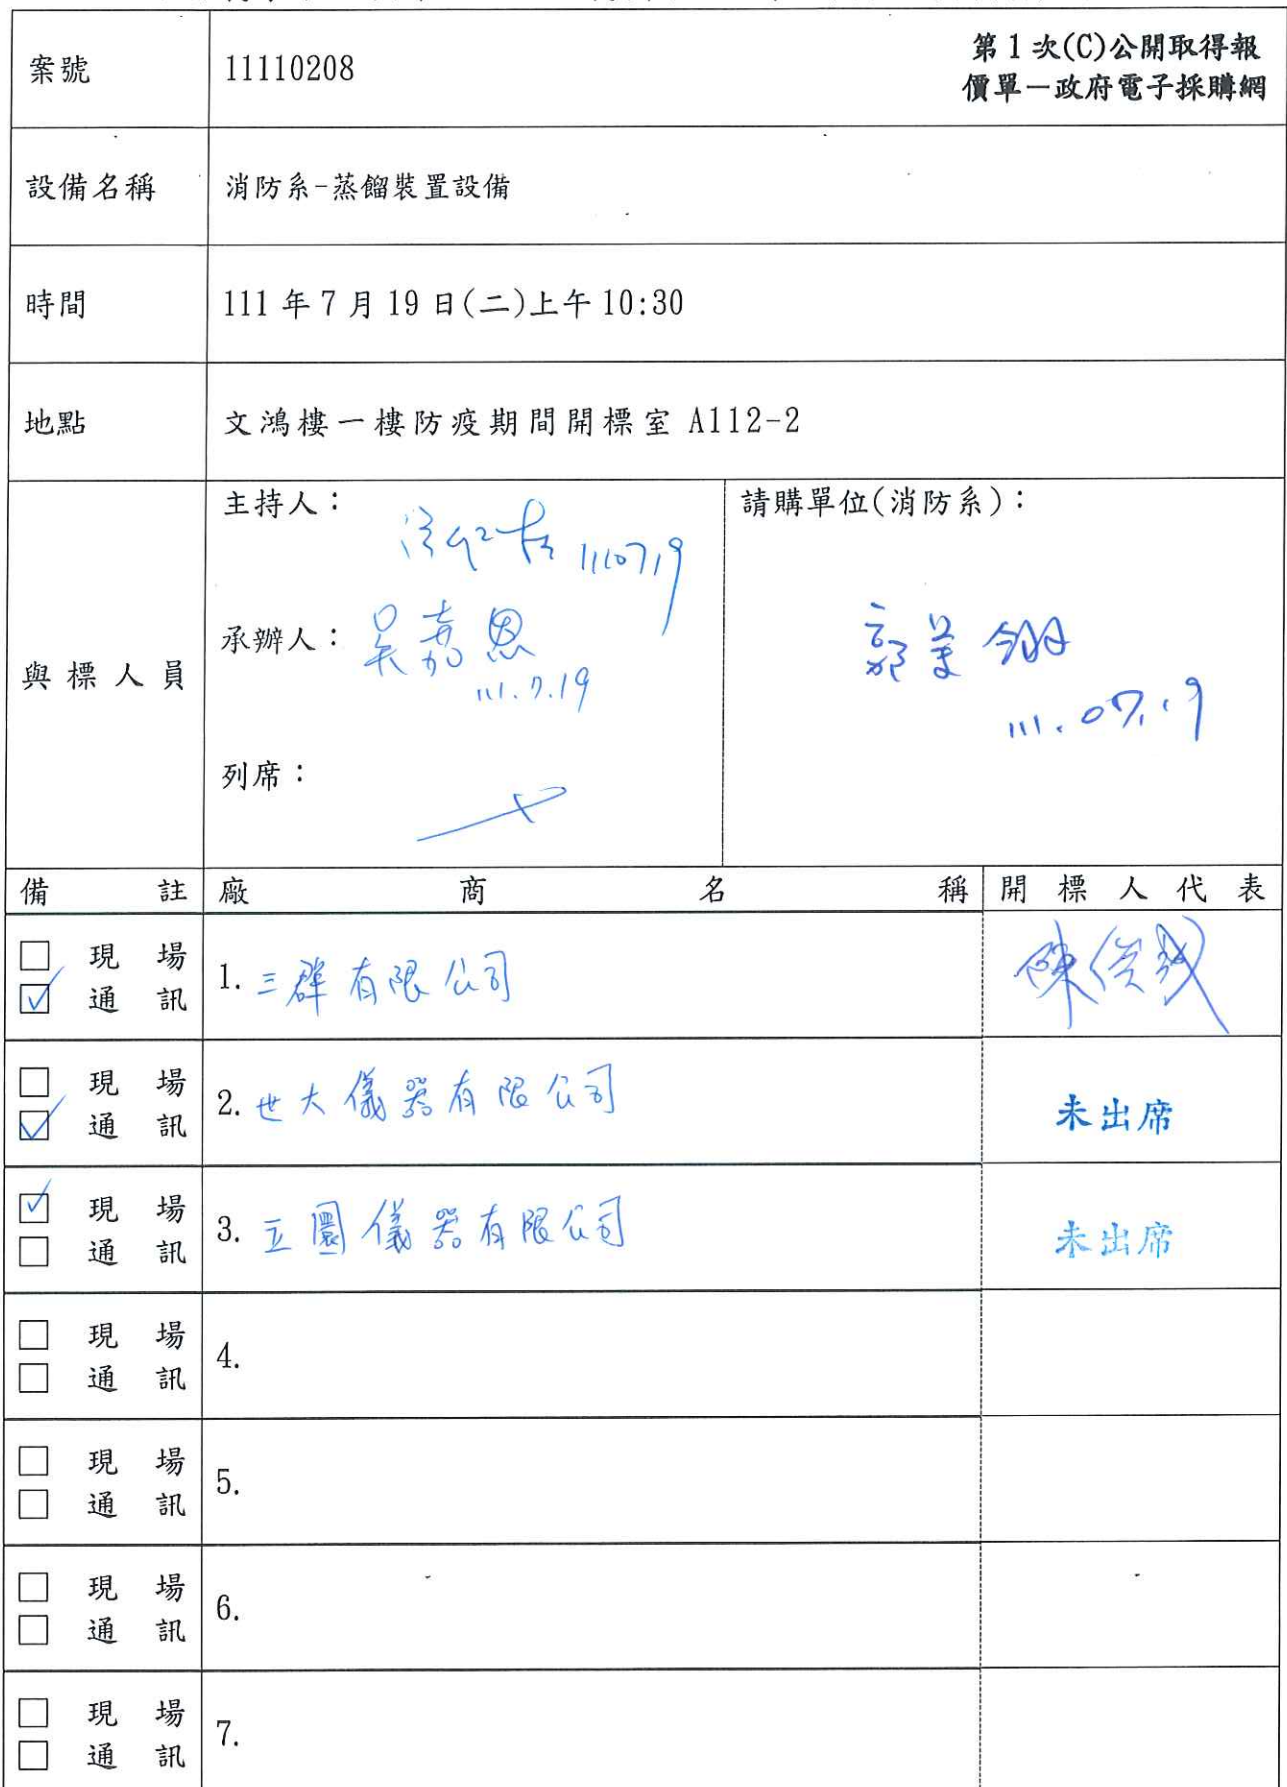 案號 11110208 第1次(C)公開取得報
價單－政府電子採購網
設備名稱 消防系-蒸餾裝置設備
時間 111年7月19日(二)上午10:30
地點 文鴻樓一樓防疫期間開標室 A112-2
與標人員
主持人：
1110719
承辦人：吳嘉恩
111.7.19
列席：
請購單位(消防系)：
郭美
111.07.19
備註 廠商名稱 開標人代表
□ 現場
☑ 通訊
1. 三群有限公司
陳俊
□ 現場
☑ 通訊
2. 世大儀器有限公司
未出席
☑ 現場
□ 通訊
3. 立圜儀器有限公司
未出席
□ 現場
□ 通訊
4.
□ 現場
□ 通訊
5.
□ 現場
□ 通訊
6.
□ 現場
□ 通訊
7.